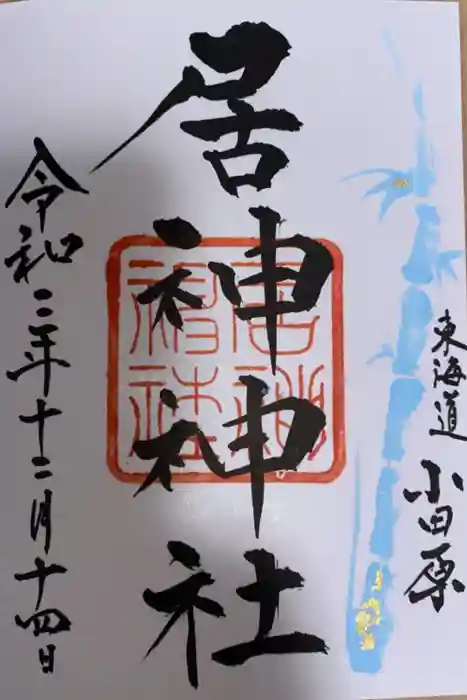 東海道
小田原
居神神社
居神
神社
令和三年十二月十四日